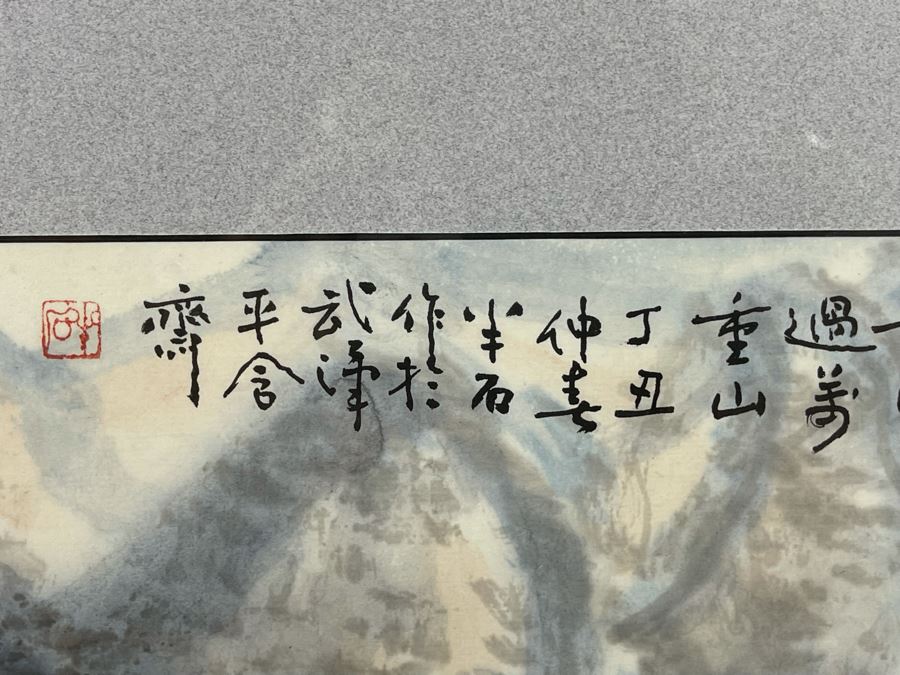 過萬
重山
丁丑
仲春
半石
作於
武澤
平舍
齋
半石